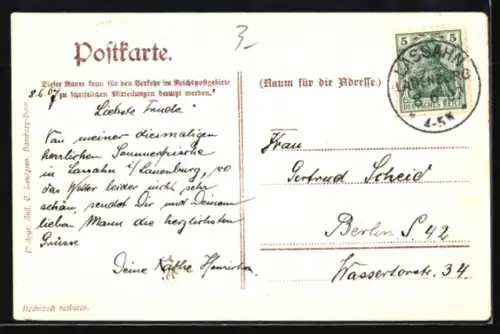 3-
Postkarte.
Dieser Raum kann für den Verkehr im Reichspostgebiete
zu schriftlichen Mitteilungen benutzt werden.
(Raum für die Adresse.)
5 5
DEUTSCHES REICH
LASSAHN
LAUENBURG
4-5N
8.6.07
Liebste Trude!
Von meiner diesmaligen
herrlichen Sommerfrische
in Lassahn i/Lauenburg, wo
das Wetter leider nicht sehr
schön, sendet Dir und Deinem
lieben Mann die herzlichsten
Grüsse
Deine Käthe
Frau
Gertrud Scheid
Berlin S. 42
Wassertorstr. 34.
Photogr. Aug. C. Lundgren, Hamburg-
Nachdruck verboten.